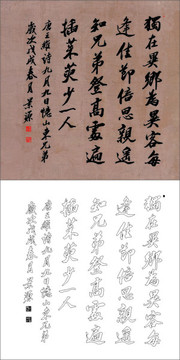 獨在異鄉為異客每
逢佳節倍思親遙
知兄弟登高處遍
插茱萸少一人
唐王維詩九月九日憶山東兄弟
歲次戊戌春月景
獨在異鄉為異客每
逢佳節倍思親遙
知兄弟登高處遍
插茱萸少一人
唐王維詩九月九日憶山東兄弟
歲次戊戌春月景